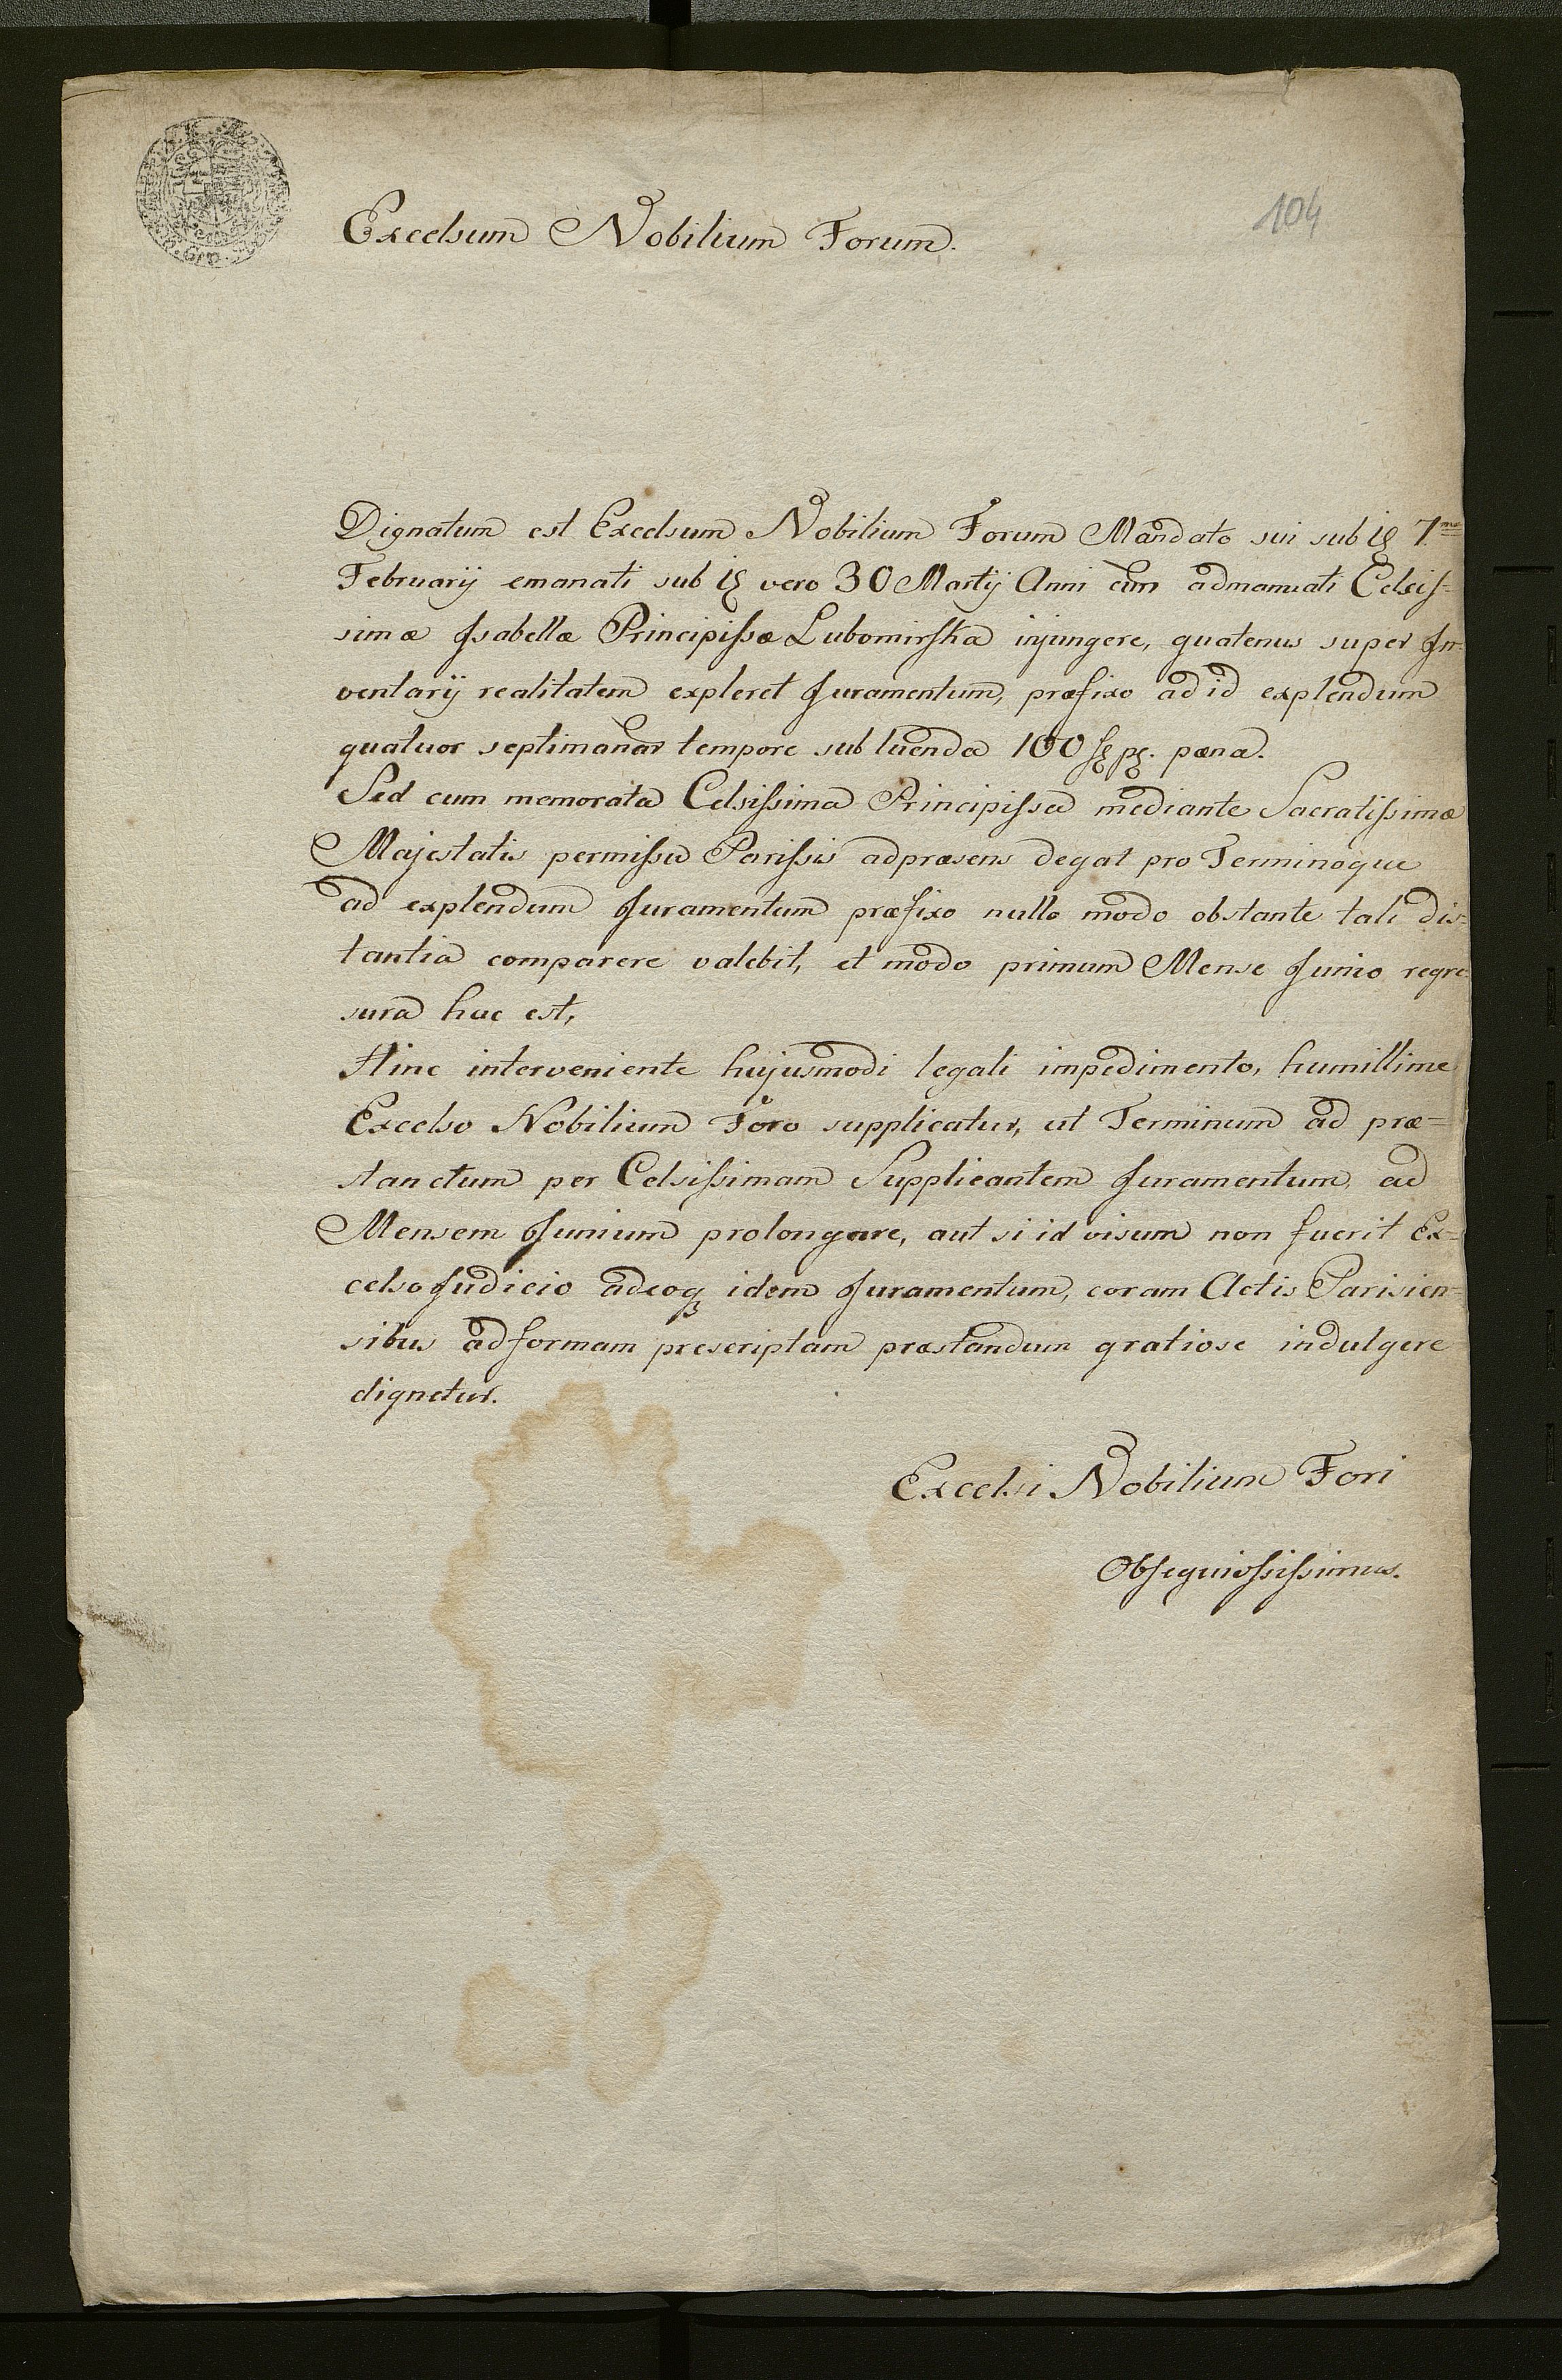 104
Excelsum Nobilium Forum.
Dignatum est Excelsum Nobilium Forum Mandato sui sub 7ma
Februarij emanati sub vero 30 Martij Anni admanuati Celsis-
simæ Isabellæ Principissæ Lubomirska injungere, quatenus super In-
ventarij realitatem expleret Juramentum, præfixo ad id explendum
quatuor septimanar tempore sub luenda 100 pæna.
Sed cum memorata Celsissima Principissa mediante Sacratissimæ
Majestatis permissu Parissis adpræsens degat pro Terminoque
ad explendum Juramentum præfixo nullo modo obstante tali dis-
tantia comparere valebit, et modo primum Mense Junio regre-
sura hac est,
Hinc interveniente hujusmodi legali impedimento, humillime
Excelso Nobilium Foro supplicatur, ut Terminum ad præ-
stanctum per Celsissimam Supplicantem Juramentum, ad
Mensem Junium prolongare, aut si id visum non fuerit Ex-
celso Judicio adeoq idem Juramentum, coram Actis Parisien-
sibus ad formam prescriptam præstandum gratiose indulgere
dignetur.
Excelsi Nobilium Fori
Obsequiossissimus.